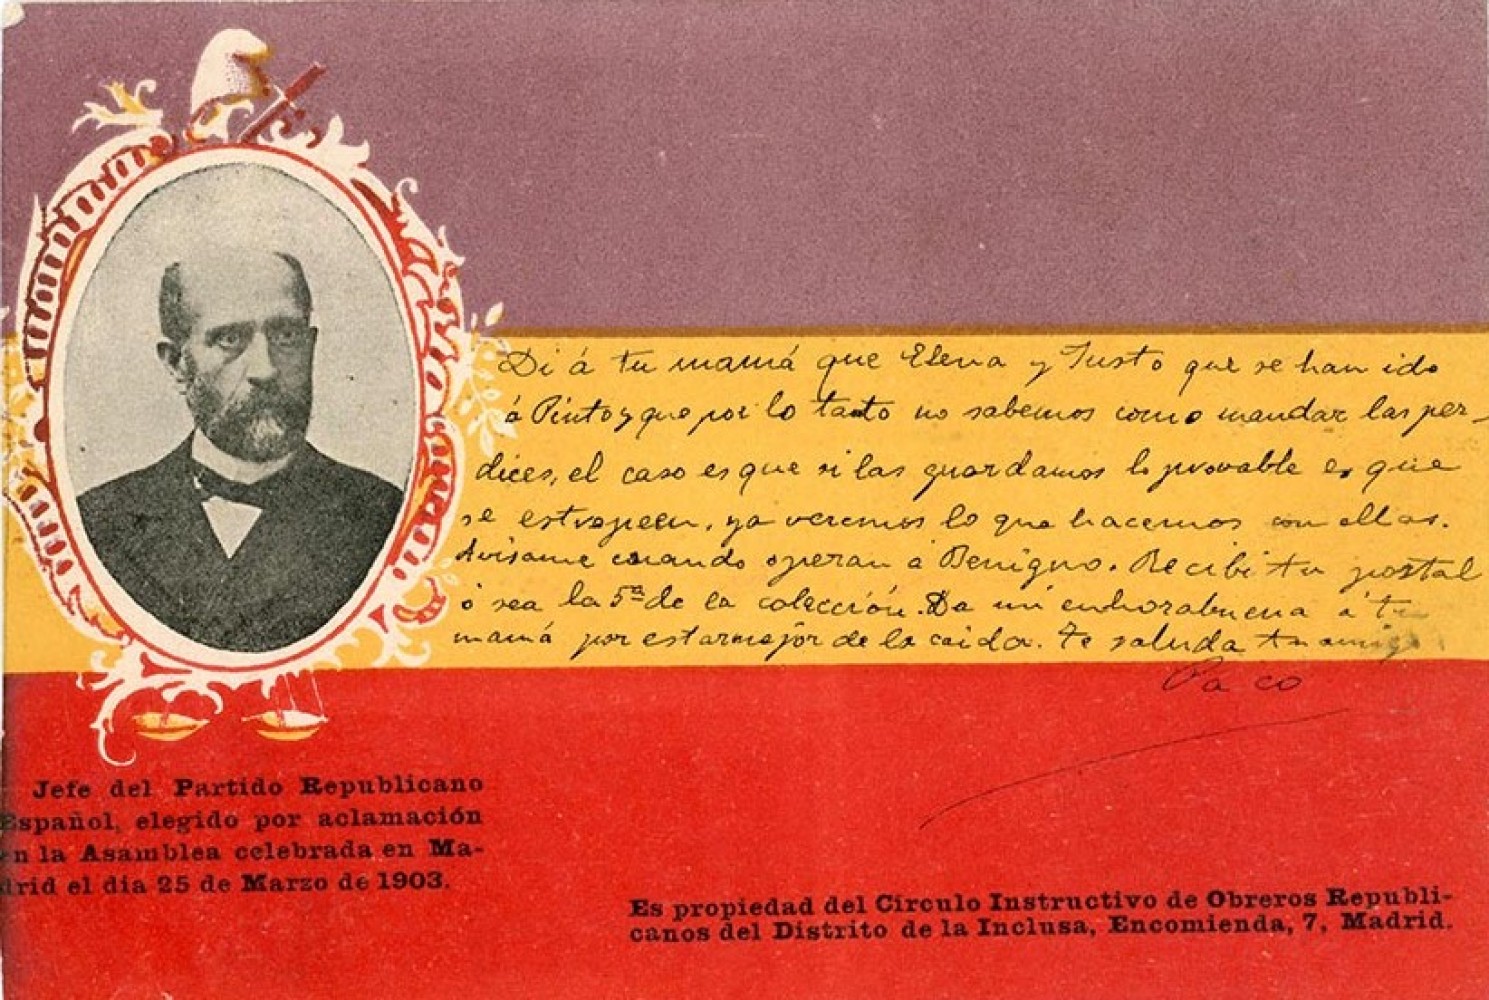 Di á tu mamá que Elena y Justo que se han ido
á Pinto y que por lo tanto no sabemos como mandar las per-
dices, el caso es que si las guardamos lo provable es que
se estropeen, ya veremos lo que hacemos con ellas.
Avisame cuando operan a Benigno. Recibi tu postal
ó sea la 5ª de la colección. Da mi enhorabuena á tu
mamá por estar mejor de la caida. Te saluda tu amigo
Paco
Jefe del Partido Republicano
Español, elegido por aclamación
en la Asamblea celebrada en Ma-
drid el dia 25 de Marzo de 1903.
Es propiedad del Círculo Instructivo de Obreros Republi-
canos del Distrito de la Inclusa, Encomienda, 7, Madrid.